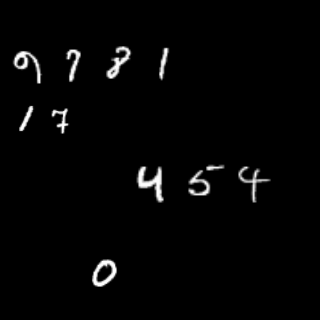 9781
17
454
0